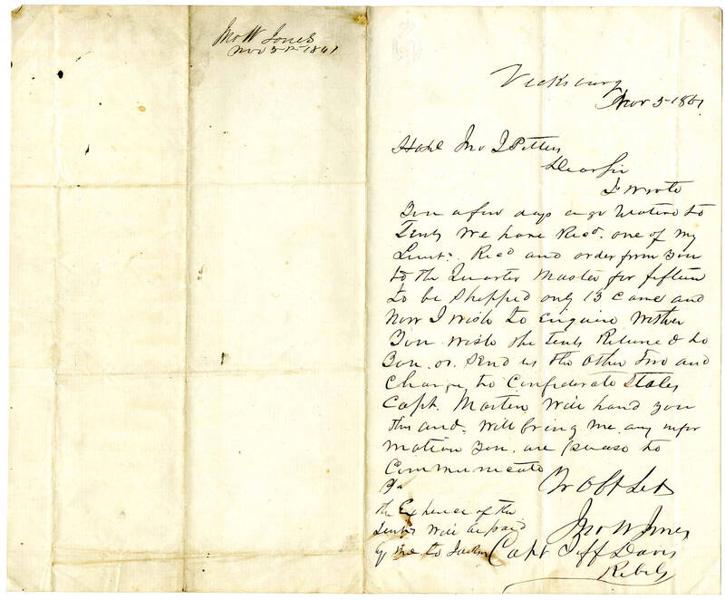 Jno W Jones
Nov 5th 1861
Vicksburg
Nov 5 1861
Jno J Pettus
Dear Sir
I wrote
You a few days ago
Tents We have Recd. one of my
Lieut. Recd and order from You
to the Quarter Master for fifteen
to be Shipped only 13 Came and
Now I wish to Enquire
You wish the Tents Returned to
You. or. Send us the other Two and
Charge to Confederate States
Capt. Marten Will hand You
this and. Will bring me. any infor
mation You. are please to
Communicate
Ps
the Expence of the
Tents Will be paid
by me to
Yr Obt
Jno W Jones
Capt Jeff Davis
Rebels